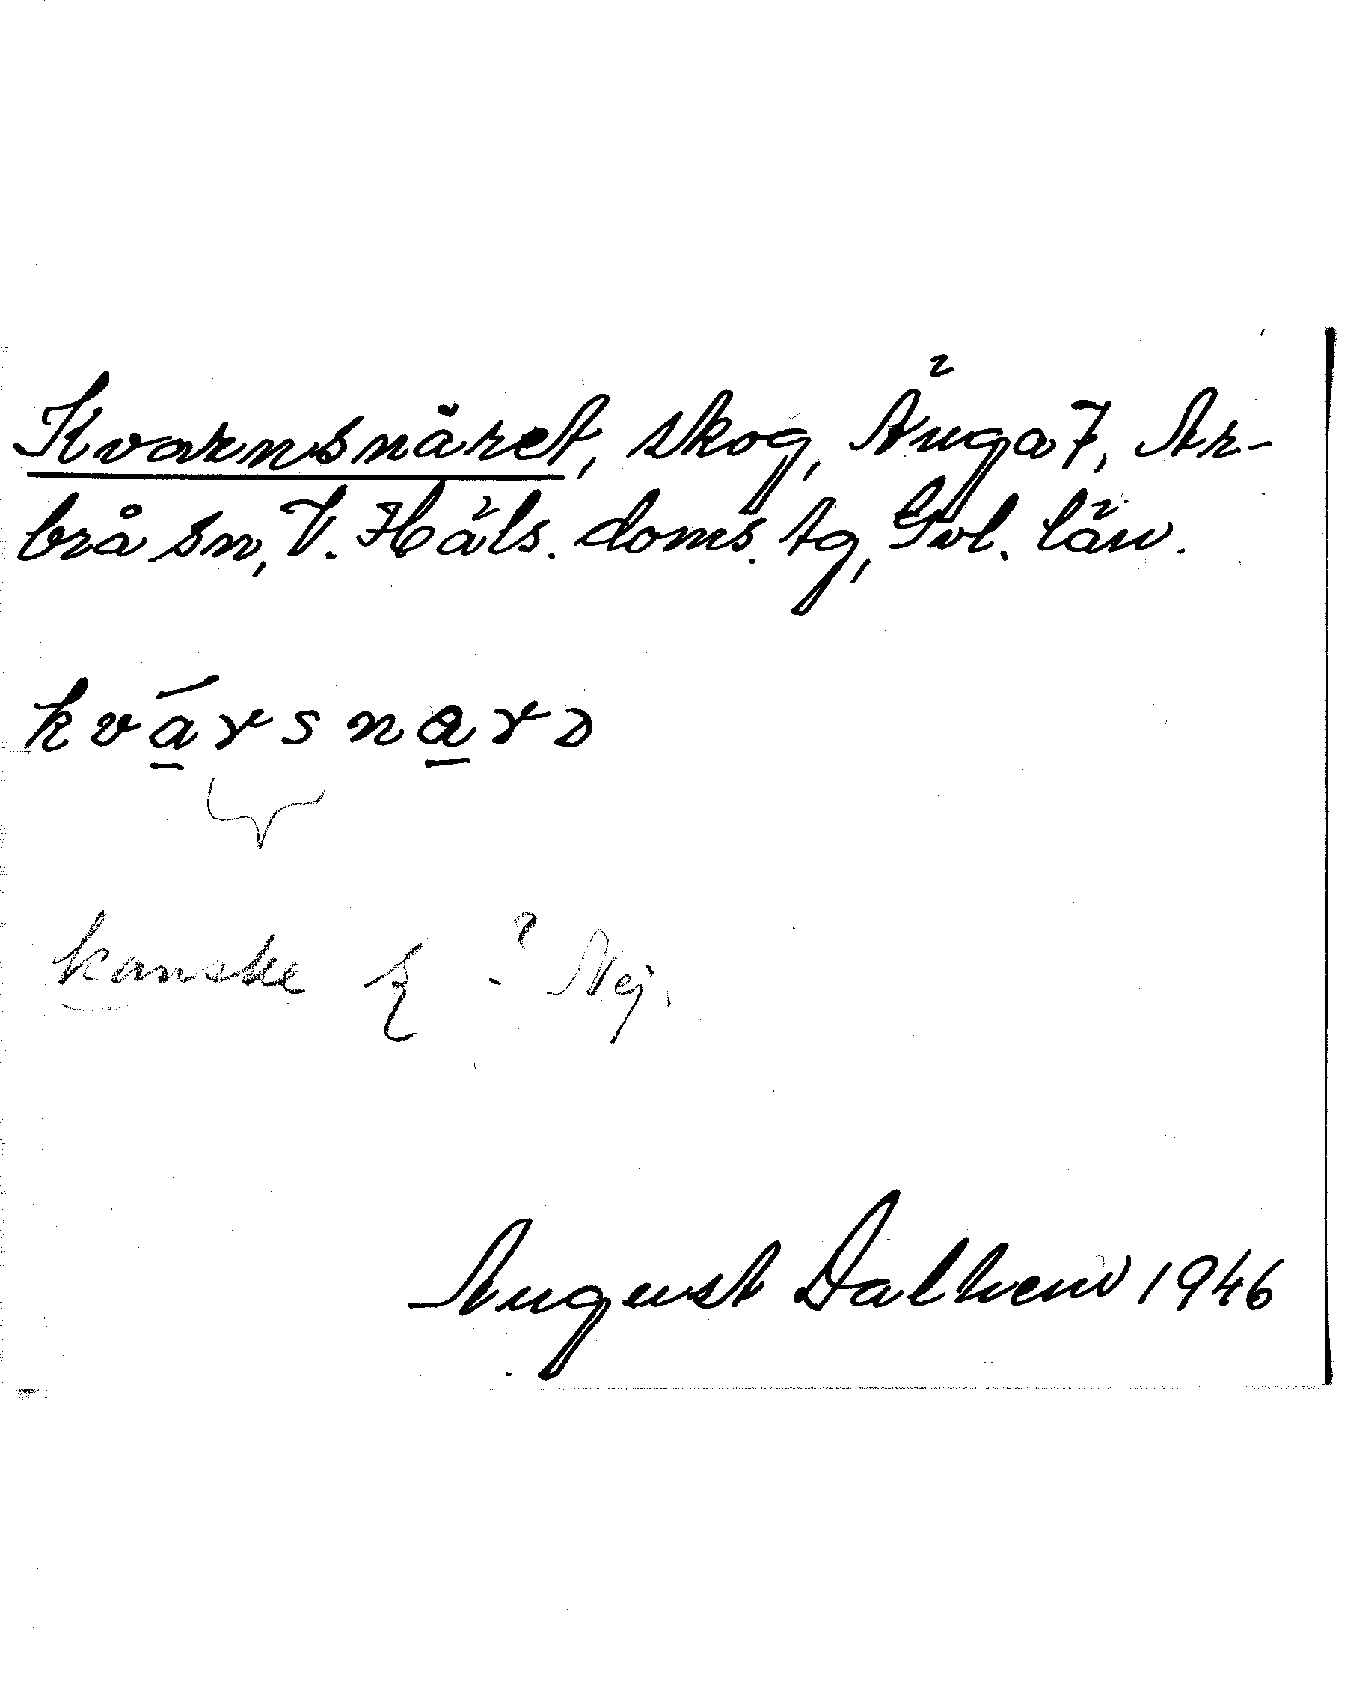 Kvarnsnäret, skog, Änga 7, Ar-
brå sn, V. Häls. doms. tg, Gvl. län.
kva̲rsna̲rə
kanske ? Nej.
August Dalhem 1946